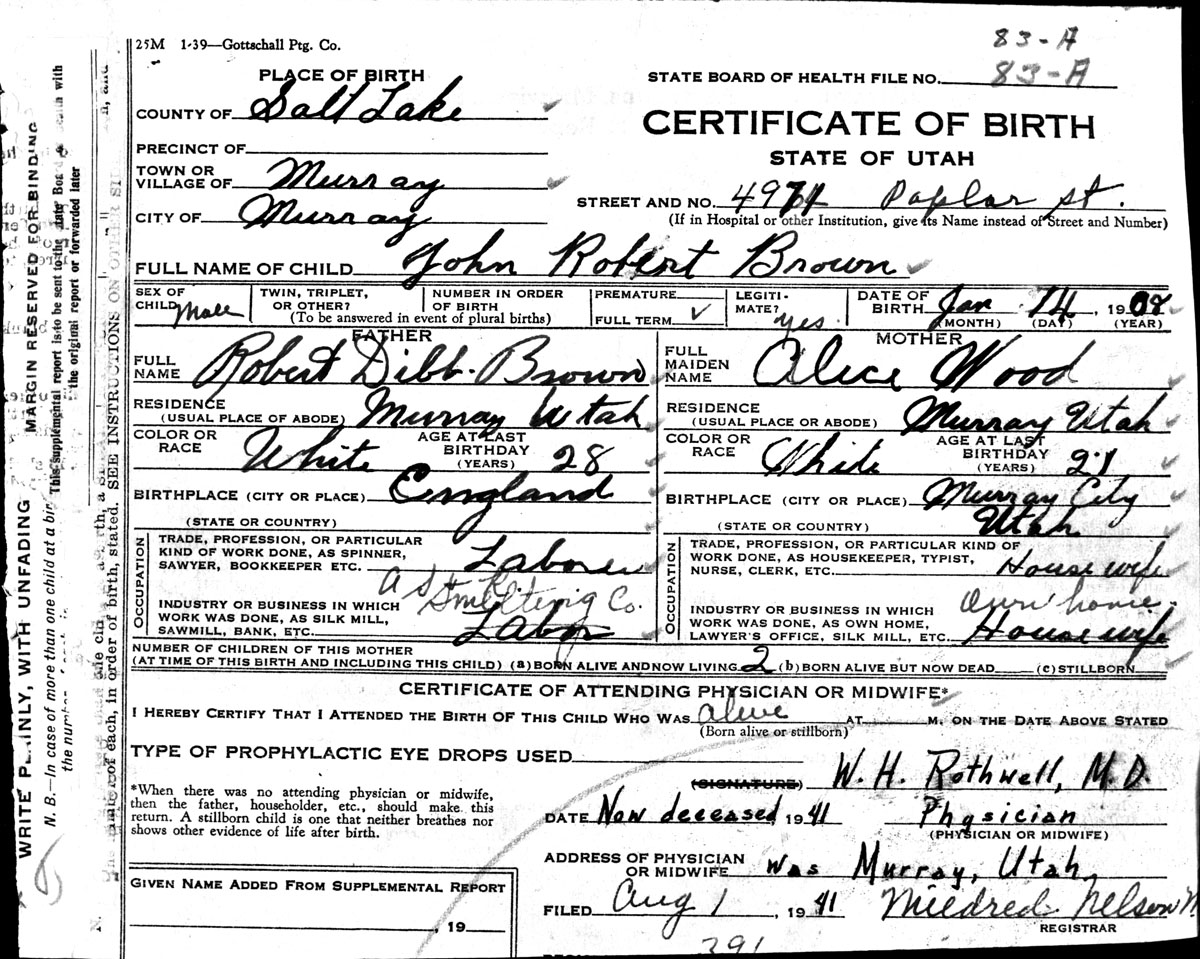 25M 1-39—Gottschall Ptg. Co.
83-A
STATE BOARD OF HEALTH FILE NO. 83-A
PLACE OF BIRTH
COUNTY OF Salt Lake ✓
CERTIFICATE OF BIRTH
STATE OF UTAH
PRECINCT OF
TOWN OR VILLAGE OF Murray ✓
CITY OF Murray
STREET AND NO. Poplar St.
(If in Hospital or other Institution, give its Name instead of Street and Number)
FULL NAME OF CHILD John Robert Brown ✓
SEX OF CHILD Male
TWIN, TRIPLET, OR OTHER?
NUMBER IN ORDER OF BIRTH
(To be answered in event of plural births)
PREMATURE
FULL TERM ✓
LEGITIMATE? yes
DATE OF BIRTH Jan 14, 1908
(MONTH) (DAY) (YEAR)
FATHER
FULL NAME Robert Dibb. Brown
RESIDENCE (USUAL PLACE OF ABODE) Murray Utah
COLOR OR RACE White
AGE AT LAST BIRTHDAY (YEARS) 28
BIRTHPLACE (CITY OR PLACE) England
(STATE OR COUNTRY)
OCCUPATION
TRADE, PROFESSION, OR PARTICULAR
KIND OF WORK DONE, AS SPINNER,
SAWYER, BOOKKEEPER ETC. Laborer
INDUSTRY OR BUSINESS IN WHICH
WORK WAS DONE, AS SILK MILL,
SAWMILL, BANK, ETC. Smelting Co.
Labor
MOTHER
FULL MAIDEN NAME Alice Wood
RESIDENCE (USUAL PLACE OR ABODE) Murray Utah
COLOR OR RACE White
AGE AT LAST BIRTHDAY (YEARS) 21
BIRTHPLACE (CITY OR PLACE) Murray City
(STATE OR COUNTRY) Utah
OCCUPATION
TRADE, PROFESSION, OR PARTICULAR KIND OF
WORK DONE, AS HOUSEKEEPER, TYPIST,
NURSE, CLERK, ETC. House wife
INDUSTRY OR BUSINESS IN WHICH
WORK WAS DONE, AS OWN HOME,
LAWYER'S OFFICE, SILK MILL, ETC. Own home.
House wife
NUMBER OF CHILDREN OF THIS MOTHER
(AT TIME OF THIS BIRTH AND INCLUDING THIS CHILD) (a) BORN ALIVE AND NOW LIVING 2 (b) BORN ALIVE BUT NOW DEAD (c) STILLBORN
CERTIFICATE OF ATTENDING PHYSICIAN OR MIDWIFE*
I HEREBY CERTIFY THAT I ATTENDED THE BIRTH OF THIS CHILD WHO WAS alive AT M. ON THE DATE ABOVE STATED
(Born alive or stillborn)
TYPE OF PROPHYLACTIC EYE DROPS USED
(SIGNATURE) W. H. Rothwell, M. D.
*When there was no attending physician or midwife,
then the father, householder, etc., should make this
return. A stillborn child is one that neither breathes nor
shows other evidence of life after birth.
DATE Now deceased 1941 Physician
(PHYSICIAN OR MIDWIFE)
ADDRESS OF PHYSICIAN OR MIDWIFE Was Murray, Utah.
GIVEN NAME ADDED FROM SUPPLEMENTAL REPORT
, 19
FILED Aug 1, 1941 Mildred Nelson
REGISTRAR
391
WRITE PLAINLY, WITH UNFADING
MARGIN RESERVED FOR BINDING
N. B.—In case of more than one child at a
This supplemental report is to be sent to the State with
the original report or forwarded later
of each, in order of birth, stated. SEE INSTRUCTIONS ON OTHER